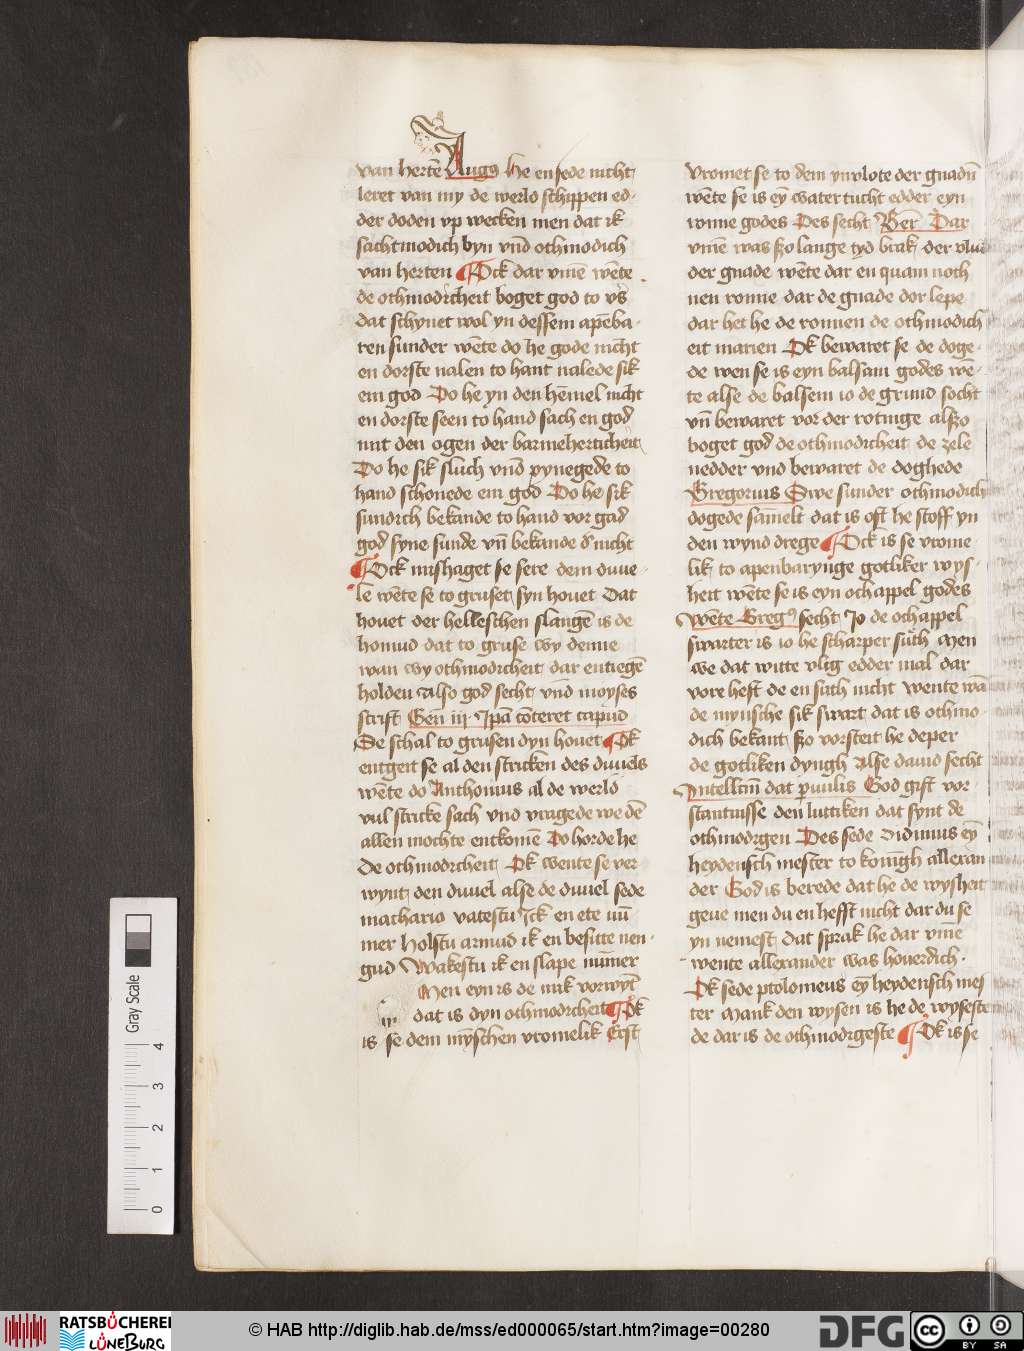 van herten̄ Augꝰ He en sede nicht
leret van my de werld schippen ed-
der doden vp wecken men dat ik
sachtmodich byn vnd othmodich
van herten Ock dar vm̄e wēte
de othmodicheit boget god to vs̄
dat schynet wol yn dessem apēba-
ren sunder wēte do he gode nicht
en dorste nalen to hant nalede sik
em god Do he yn den hēmel nicht
en dorste seen to hand sach en god
mit den ogen der barmeherticheit
Do he sik sluch vnd pynegede to
hand schonede em god Do he sik
sundich bekande to hand vor gad
god syne sunde vn̄ bekande d' nicht
Ock mishaget se sere dem duue-
le wēte se to gruset syn houet Dat
houet der helleschen slangē is de
homud dat to gruse wy denne
wan wy othmodicheit dar entiegē
holden Also god secht vnd moyses
scrift Gen̄ iij Ipā cōteret caput
Se schal to grusen dyn houet Ok
entgeit se al den stricken des duuels
wēte do Anthonius al de werld
vul stricke sach vnd vragede we dē
allen mochte entkomē Do horde he
De othmodicheit Ok wente se ver
wynt den duuel alse de duuel sede
machario vatestu Ick en ete nū
mer Holstu armud ik en besitte nen
gud Wakestu ik en slape nūmer
Men eyn is de mik vorwyt
iii dat is dyn othmodicheit Ok
is se dem mȳschen vromelik Erst
vromet se to dem ynvlote der gnadn̄
wēte se is eȳ watertucht edder eyn
ronne godes Des secht Ber̄ Dar
vm̄e was szo lange tyd brak der vlud
der gnade wēte dar en quam noch
nen ronne dar de gnade dor lepe
dar het he de ronnen de othmodich
eit marien Ok bewaret se de doge-
de wen se is eyn balsam godes wē-
te alse de balsem io de grund socht
vn̄ bewaret vor der rotinge alszo
boget god de othmodicheit de zele
nedder vnd bewaret de doghede
Gregorius Swe sunder othmodich
dogede sāmelt dat is oft he stoff yn
den wynd drege Ock is se vrome
lik to apenbarynge gotliker wys-
heit wēte se is eyn ochappel godes
Wēte Gregꝰ secht Jo de ochappel
swarter is io he scharper sūth Men
we dat witte vlig edder mal dar
vore heft de en suth nicht Wente wā
de mynsche sik swart dat is othmo-
dich bekant szo vorsteit he deper
de gotliken dyngh Alse dauid secht
Intellcm̄ dat p̄uulis God gift vor
stantnisse den luttiken dat synt de
othmodigen Des sede Didimus eȳ
heydensch mester to konigh allexan
der God is berede dat he de wysheit
geue men du en hefft nicht dar du se
yn nemest Dat sprak he dar vm̄e
wente allexander was houerdich.
Ok sede ptolomeus eȳ heydensch mes
ter Mank den wysen is he de wyseste
de dar is de othmodigeste Ok is se
Gray Scale
0 1 2 3 4
RATSBÜCHEREI
LÜNEBURG
© HAB http://diglib.hab.de/mss/ed000065/start.htm?image=00280
DFG
cc BY SA